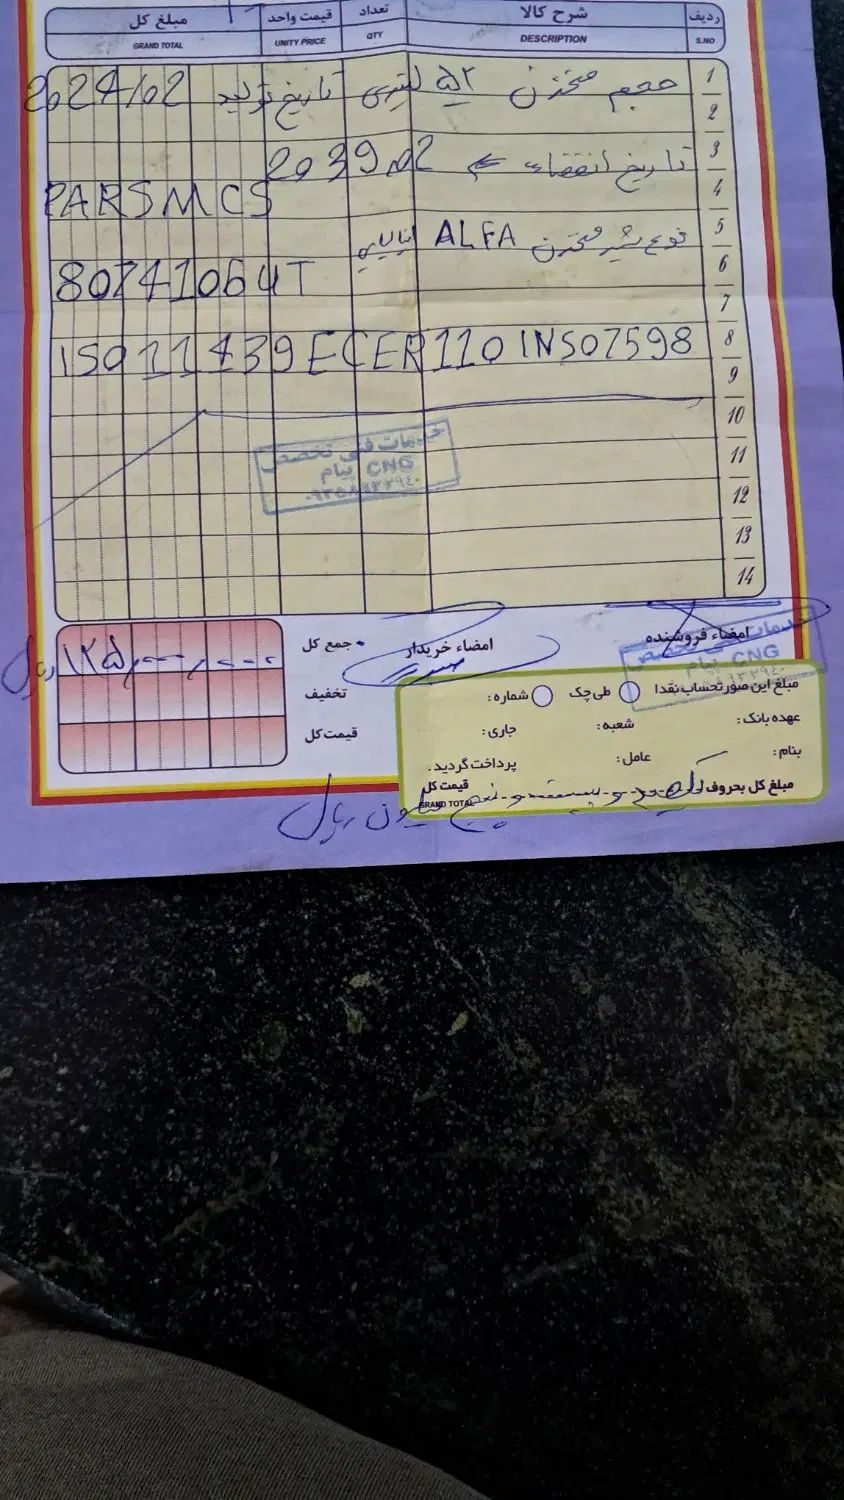 ردیف شرح کالا تعداد قیمت واحد مبلغ کل
S.NO DESCRIPTION QTY UNITY PRICE GRAND TOTAL
1 حجم مخزن ۵۲ لیتری تاریخ تولید 2024/02
2
3 تاریخ انقضاء 2039,02
4 PARSMCS
5 نوع شیر مخزن ALFA ایتالیایی
6 80741064T
7
8 ISO11439ECER110INS07598
9
10
11
12
13
14
خدمات فنی تخصصی
CNG پیام
امضاء فروشنده امضاء خریدار جمع کل ۱۲۵,۰۰۰,۰۰۰ ریال
خدمات فنی تخصصی
CNG پیام
تخفیف
قیمت کل
مبلغ این صورتحساب نقدا طی چک شماره:
عهده بانک: شعبه: جاری:
بنام: عامل: پرداخت گردید.
مبلغ کل بحروف یکصد و بیست و پنج میلیون ریال قیمت کل
GRAND TOTAL